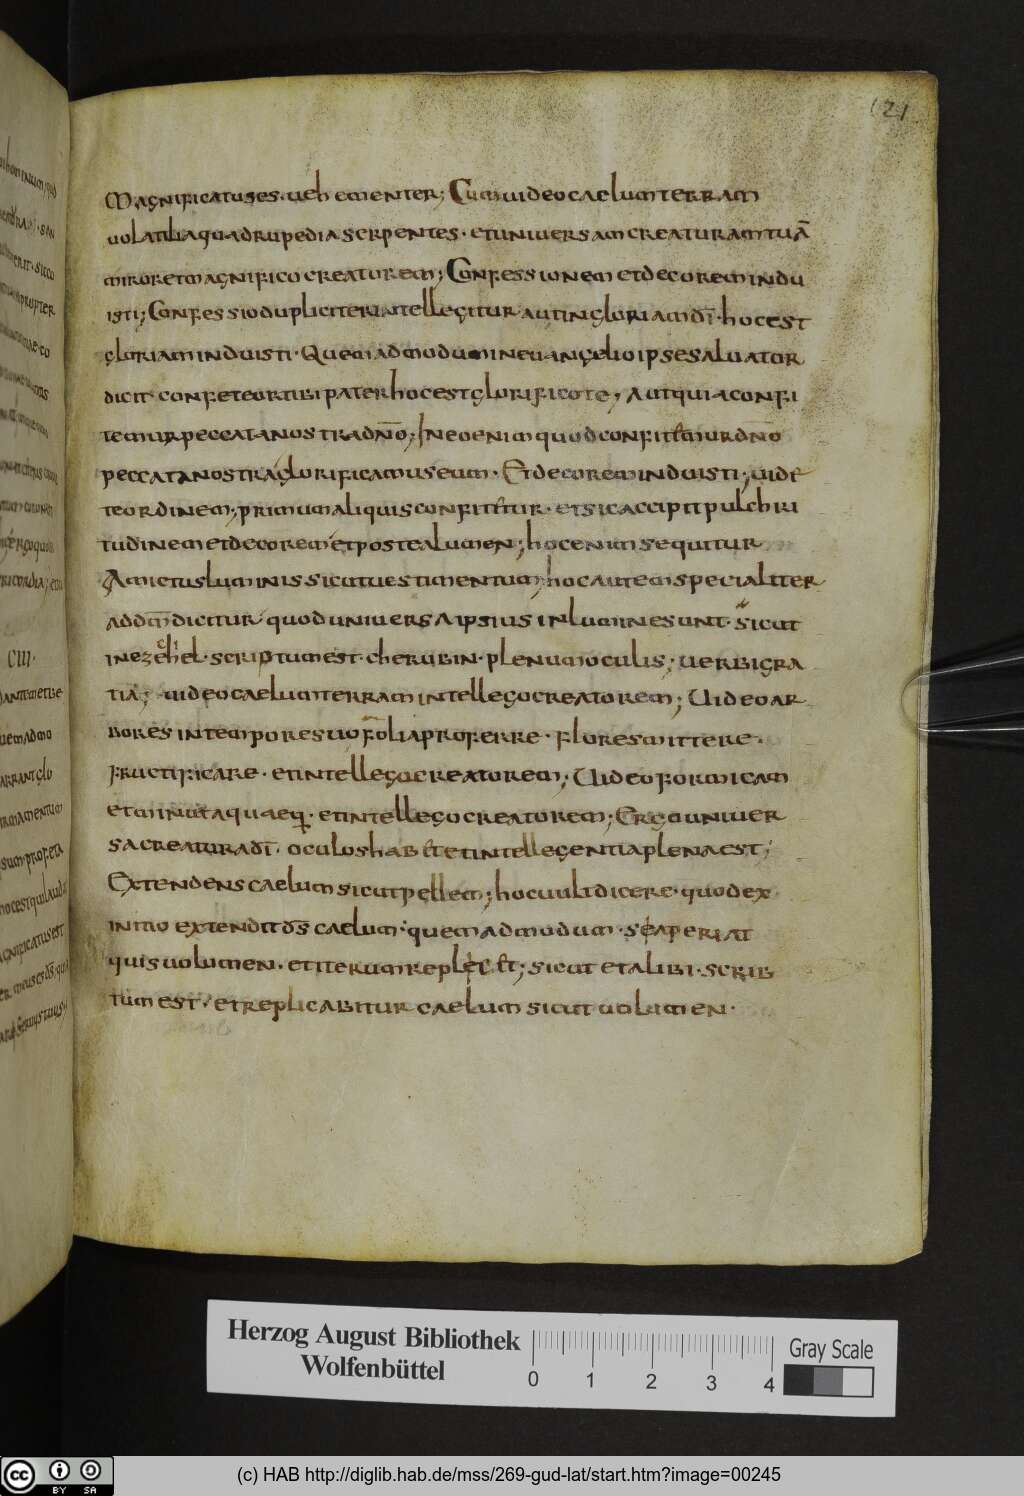 121
magnificatus es. uehementer; Cum uideo caelum terram
uolatilia quadrupedia serpentes. et uniuersam creaturam tuā
miror et magnifico creatorem; Confessionem et decorem indu
isti; Confessio dupliciter intellegitur aut in gloriam dī. hoc est
gloriam induisti. Quemadmodum in euangelio ipse saluator
dicit confeteor tibi pater hoc est glorifico te, Aut quia confi
temur peccata nostra dn̄o; In eo enim quod confitemur dn̄o
peccata nostra glorificamus eum. Et decorem induisti; uide
te ordinem; primum aliquis confitetur. et sic accipit pulchri
tudinem et decorem et postea lumen; hoc enim sequitur
Amictus luminis sicut uestimentum; hoc autem specialiter
ad dm̄ dicitur quod uniuersa ipsius in lumine sunt. sicut
in ezechiel. scriptum est. cherubin. plenum oculis; uerbi gra
tia; uideo caelum terram intellego creatorem; Uideo ar
bores in tempore suo folia proferre. flores mittere.
fructificare. et intellego creatorem; Uideo formicam
et minuta quaeq. et intellego creatorem; Ergo uniuer
sa creatura dī. oculos habet et intellegentia plena est;
Extendens caelum sicut pellem; hoc uult dicere. quod ex
initio extendit ds̄ caelum. quemadmodum. si aperiat
quis uolumen. et iterum replicet; sicut et alibi. scrib
tum est. et replicabitur caelum sicut uolumen.
CIII.
Herzog August Bibliothek
Wolfenbüttel
0 1 2 3 4
Gray Scale
cc BY SA
(c) HAB http://diglib.hab.de/mss/269-gud-lat/start.htm?image=00245